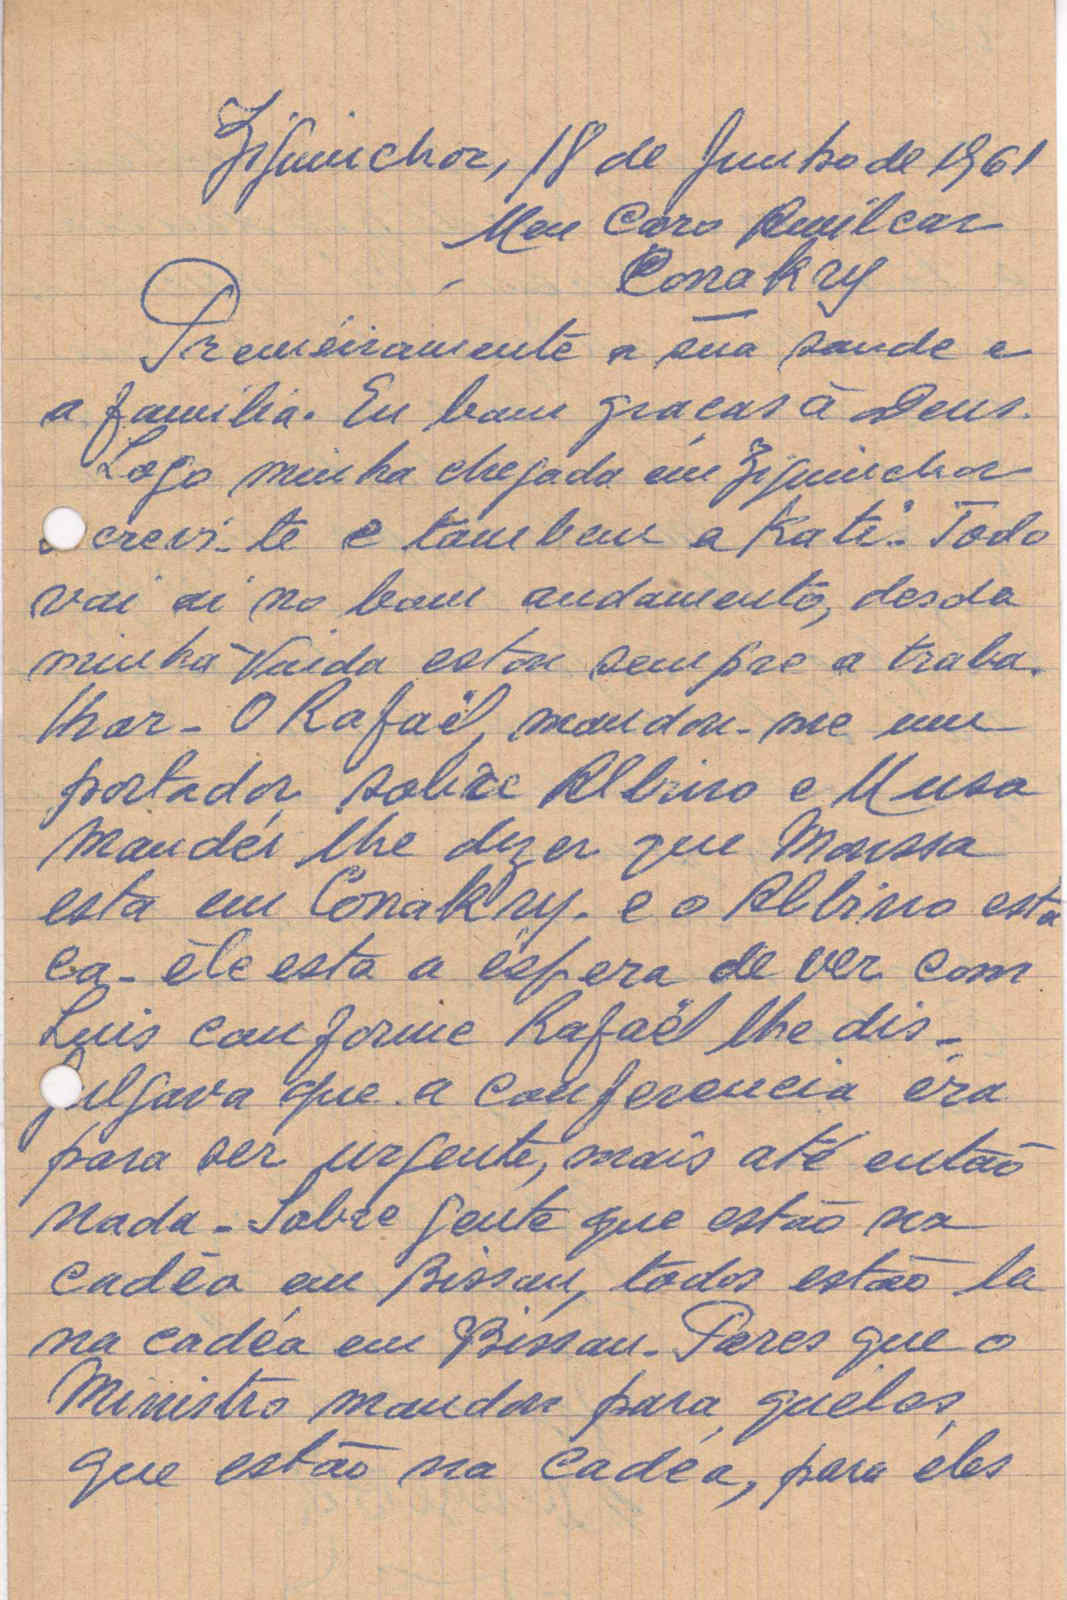 Ziguinchor, 18 de Junho de 1961
Meu Caro Amilcar
Conakry
Premeiramente a sua saude e
a familia. Eu bam graças à Deus.
Logo minha chegada em Ziguinchor
crevi-te e tambem a Kati. Todo
vai ai no bam andamento, desda
minha Vinda estou sempre a traba-
lhar - O Rafaël, mandou-me um
portador sobre Albino e Musa
mandéi lhe dizer que Moussa
esta em Conakry. e o Albino esta
ca - êle esta a éspera de ver com
Luis conforme Rafaël lhe dis-
julgava que a conferencia éra
para ser urgente, mais até então
nada - Sobre gente que estão na
cadêa em Bissau, todos estão la
na cadéa em Bissau - Pares que o
Ministro mandou para quêles
que estão na cadéa, para éles